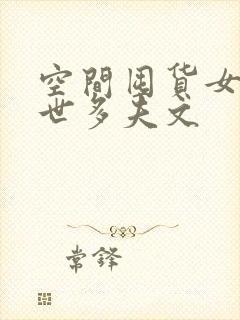 空間囤貨女
世多夫文
常鋒